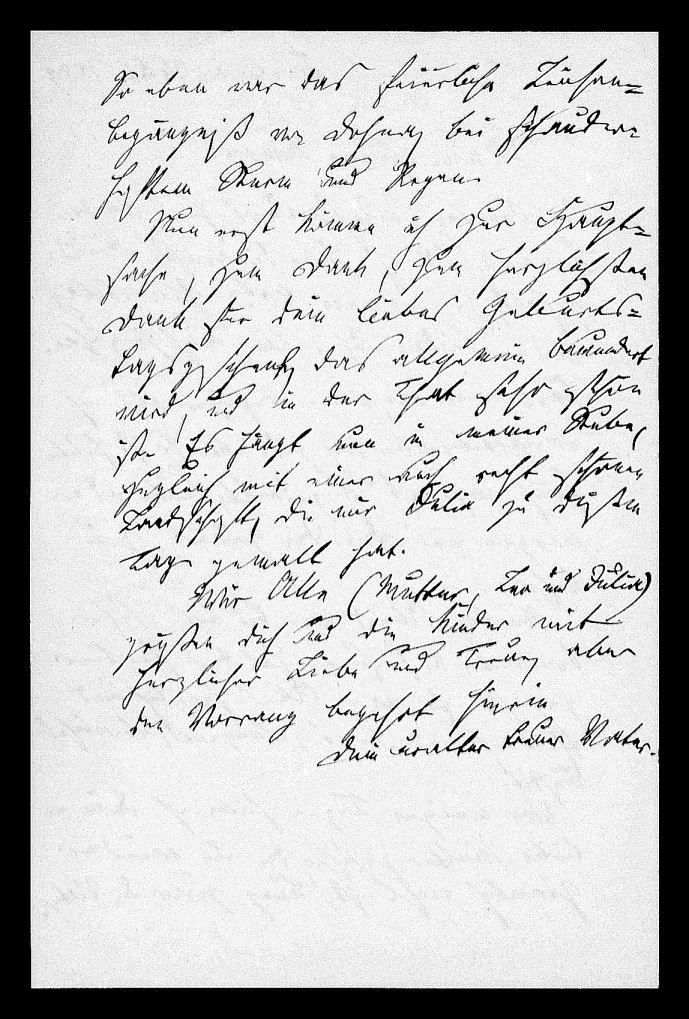 So eben war das feierliche Leichen=
begängniß von Dohna, bei schauder=
haftem Sturm und Regen.
Nun erst komme ich zur Haupt=
sache, zum Dank, zum herzlichsten
Dank für dein liebes Geburts=
tagsgeschenk, das allgemein bewundert
wird, und in der That sehr schön
ist. Es hängt nun in meiner Stube,
zugleich mit einer auch recht schönen
Landschaft, die mir Julie zu diesem
Tage gemalt hat.
Wir Alle (Mutter, Leo und Julie)
grüßen dich und die Kinder mit
herzlicher Liebe und Treue, aber
den Vorrang begehrt hierin
Dein uralter treuer Vater.